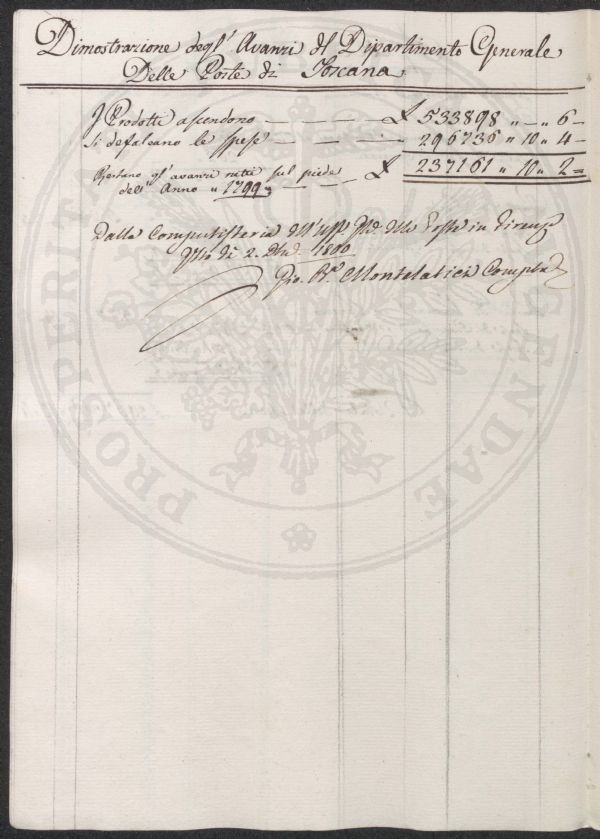 Dimostrazione degl' Avanzi del Dipartimento Generale
Delle Poste di Toscana
I Prodotti ascendono — — — — £ 533898 " — " 6 —
Si defalcano le spese — — — — 296736 " 10 " 4 —
Restano gl' avanzi netti sul piede £ 237161 " 10 " 2 =
dell' Anno " 1799 "
Dalla Computisteria dell' Uff. Gle. delle Poste in Firenze
di 2. 1800
Gio. Bta. Montelatici
PROSPERITATI AUGENDAE